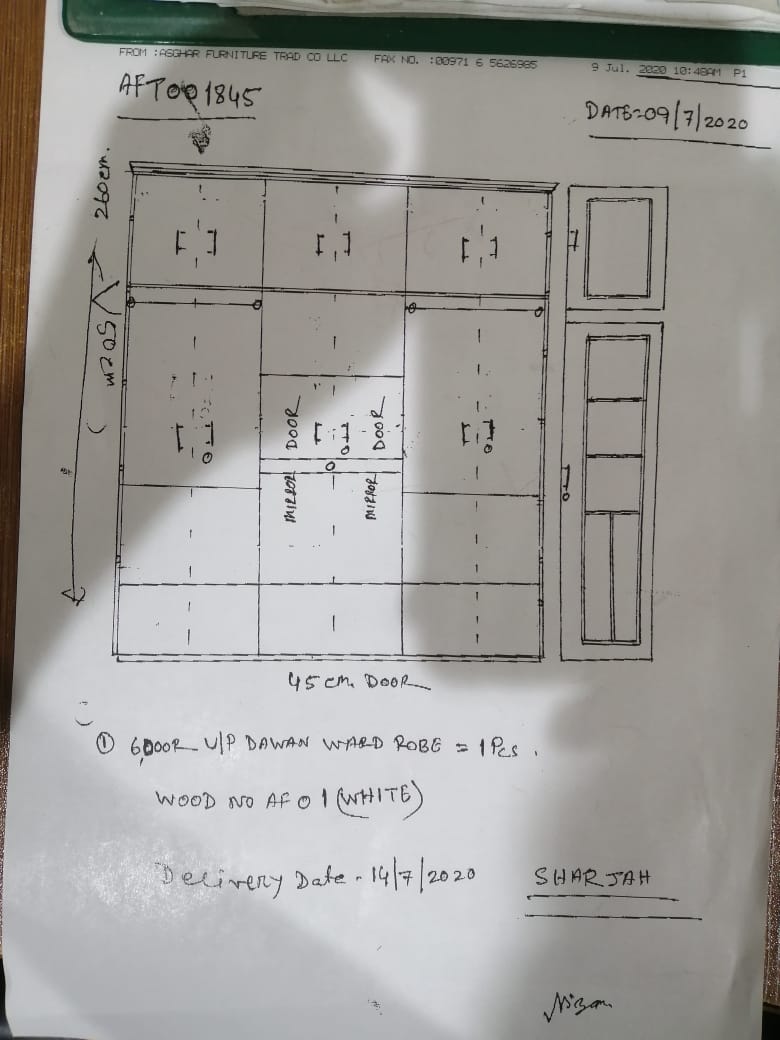 FROM :ASGHAR FURNITURE TRAD CO LLC FAX NO. :00971 6 5626985 9 Jul. 2020 10:48AM P1
AFT001845
DATE=09/7/2020
260cm.
DOOR DOOR
MIRROR MIRROR
45 cm. DOOR
① 6DOOR U/P DAWAN WARD ROBE = 1 Pcs.
WOOD NO AF 01 (WHITE)
Delivery Date - 14/7/2020 SHARJAH
Nizam